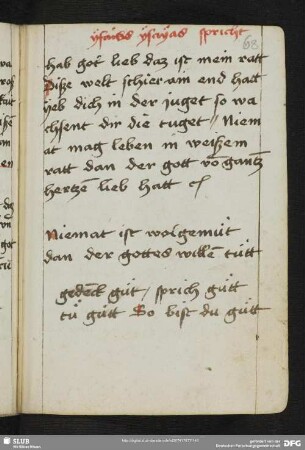 ysaias ysayas spricht
68
hab got lieb daz ist mein ratt
Disze welt schier ain end hatt
yeb dich in der juget so wa
chsent dir die tuget // Niem
at mag leben in weiszem
ratt dan der gott vō gantz
hertzē lieb hatt
Niemat ist wolgemüt
dan der gottes willē tütt
gedēck güt / sprich gütt
tü gütt So bist du gütt
SLUB
Wir führen Wissen.
gefördert von der
Deutschen Forschungsgemeinschaft
DFG